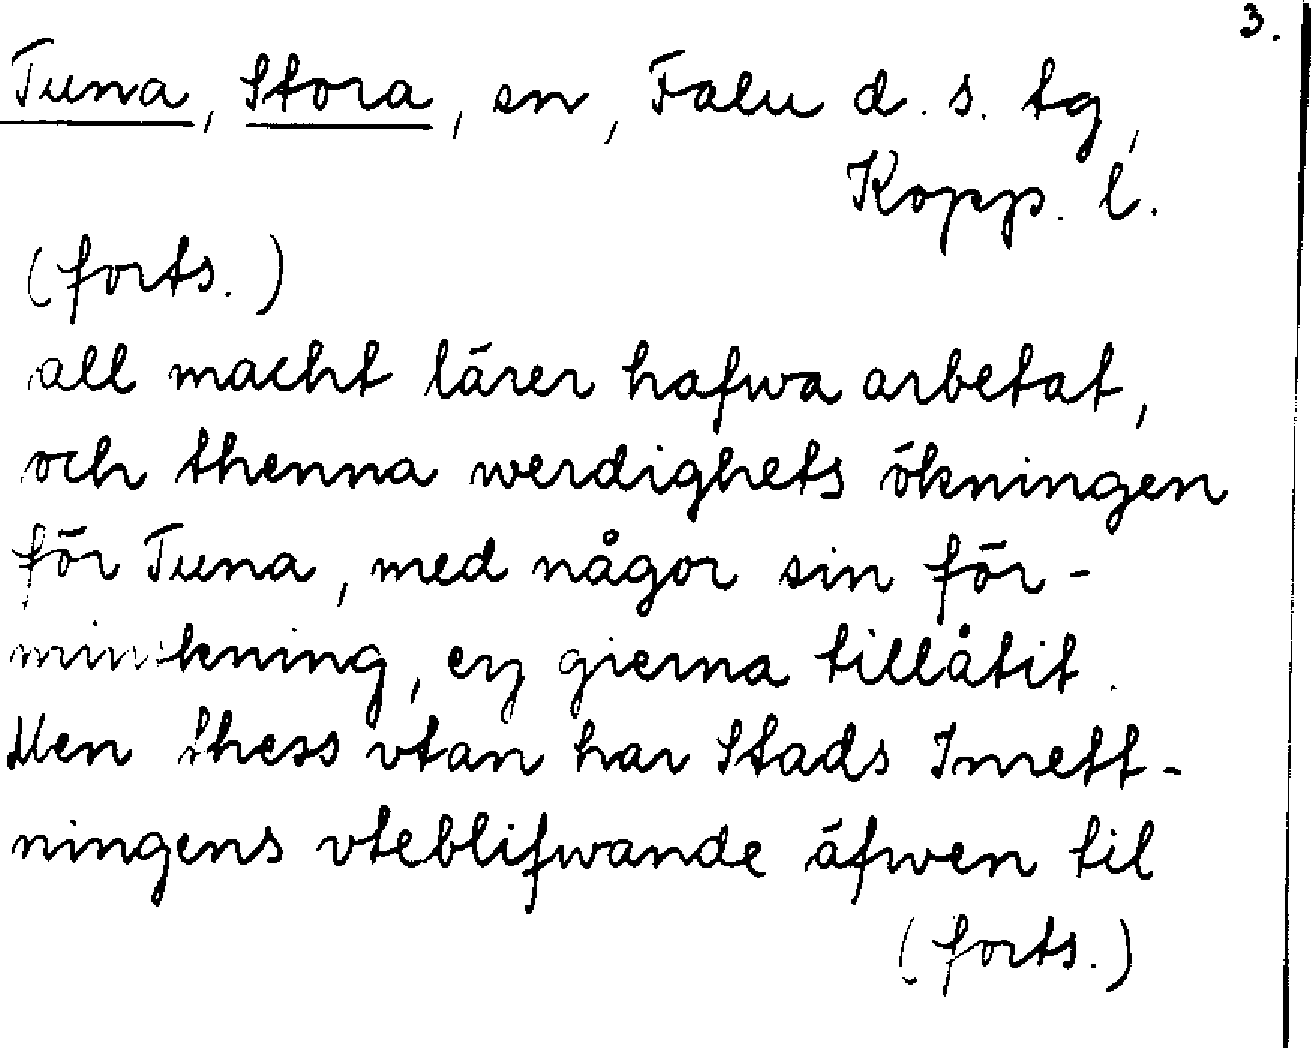 3.
Tuna, Stora, sn, Falu d. s. tg,
Kopp. l.
(forts.)
all macht lärer hafwa arbetat,
och thenna werdighets ökningen
för Tuna, med någor sin för-
minskning, ey gierna tillåtit.
Men thess vtan har Stads Inrett-
ningens vteblifwande äfwen til
(forts.)